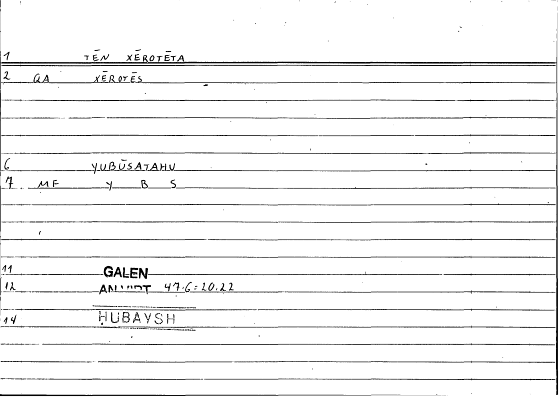 1 TĒN XĒROTĒTA
2 QA XĒROTĒS
6 YUBŪSATAHU
7 MF Y B S
11 GALEN
12 47.6=20.22
14 ḤUBAYSH